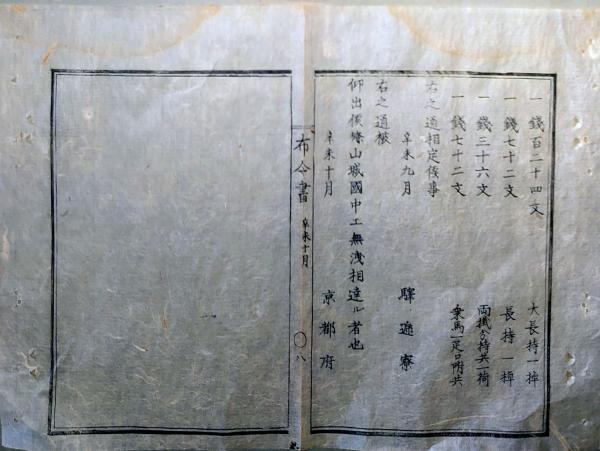 一 錢百二十四文 大長持一棹
一 錢七十二文 長持一棹
一 錢三十六文 両掛分持共一荷
一 錢七十二文 乗馬一疋口附共
右之通相定候事
辛未九月 驛遞寮
右之通被
仰出候條山城國中エ無洩相達ル者也
辛未十月 京都府
布令書 辛未十月 〇八